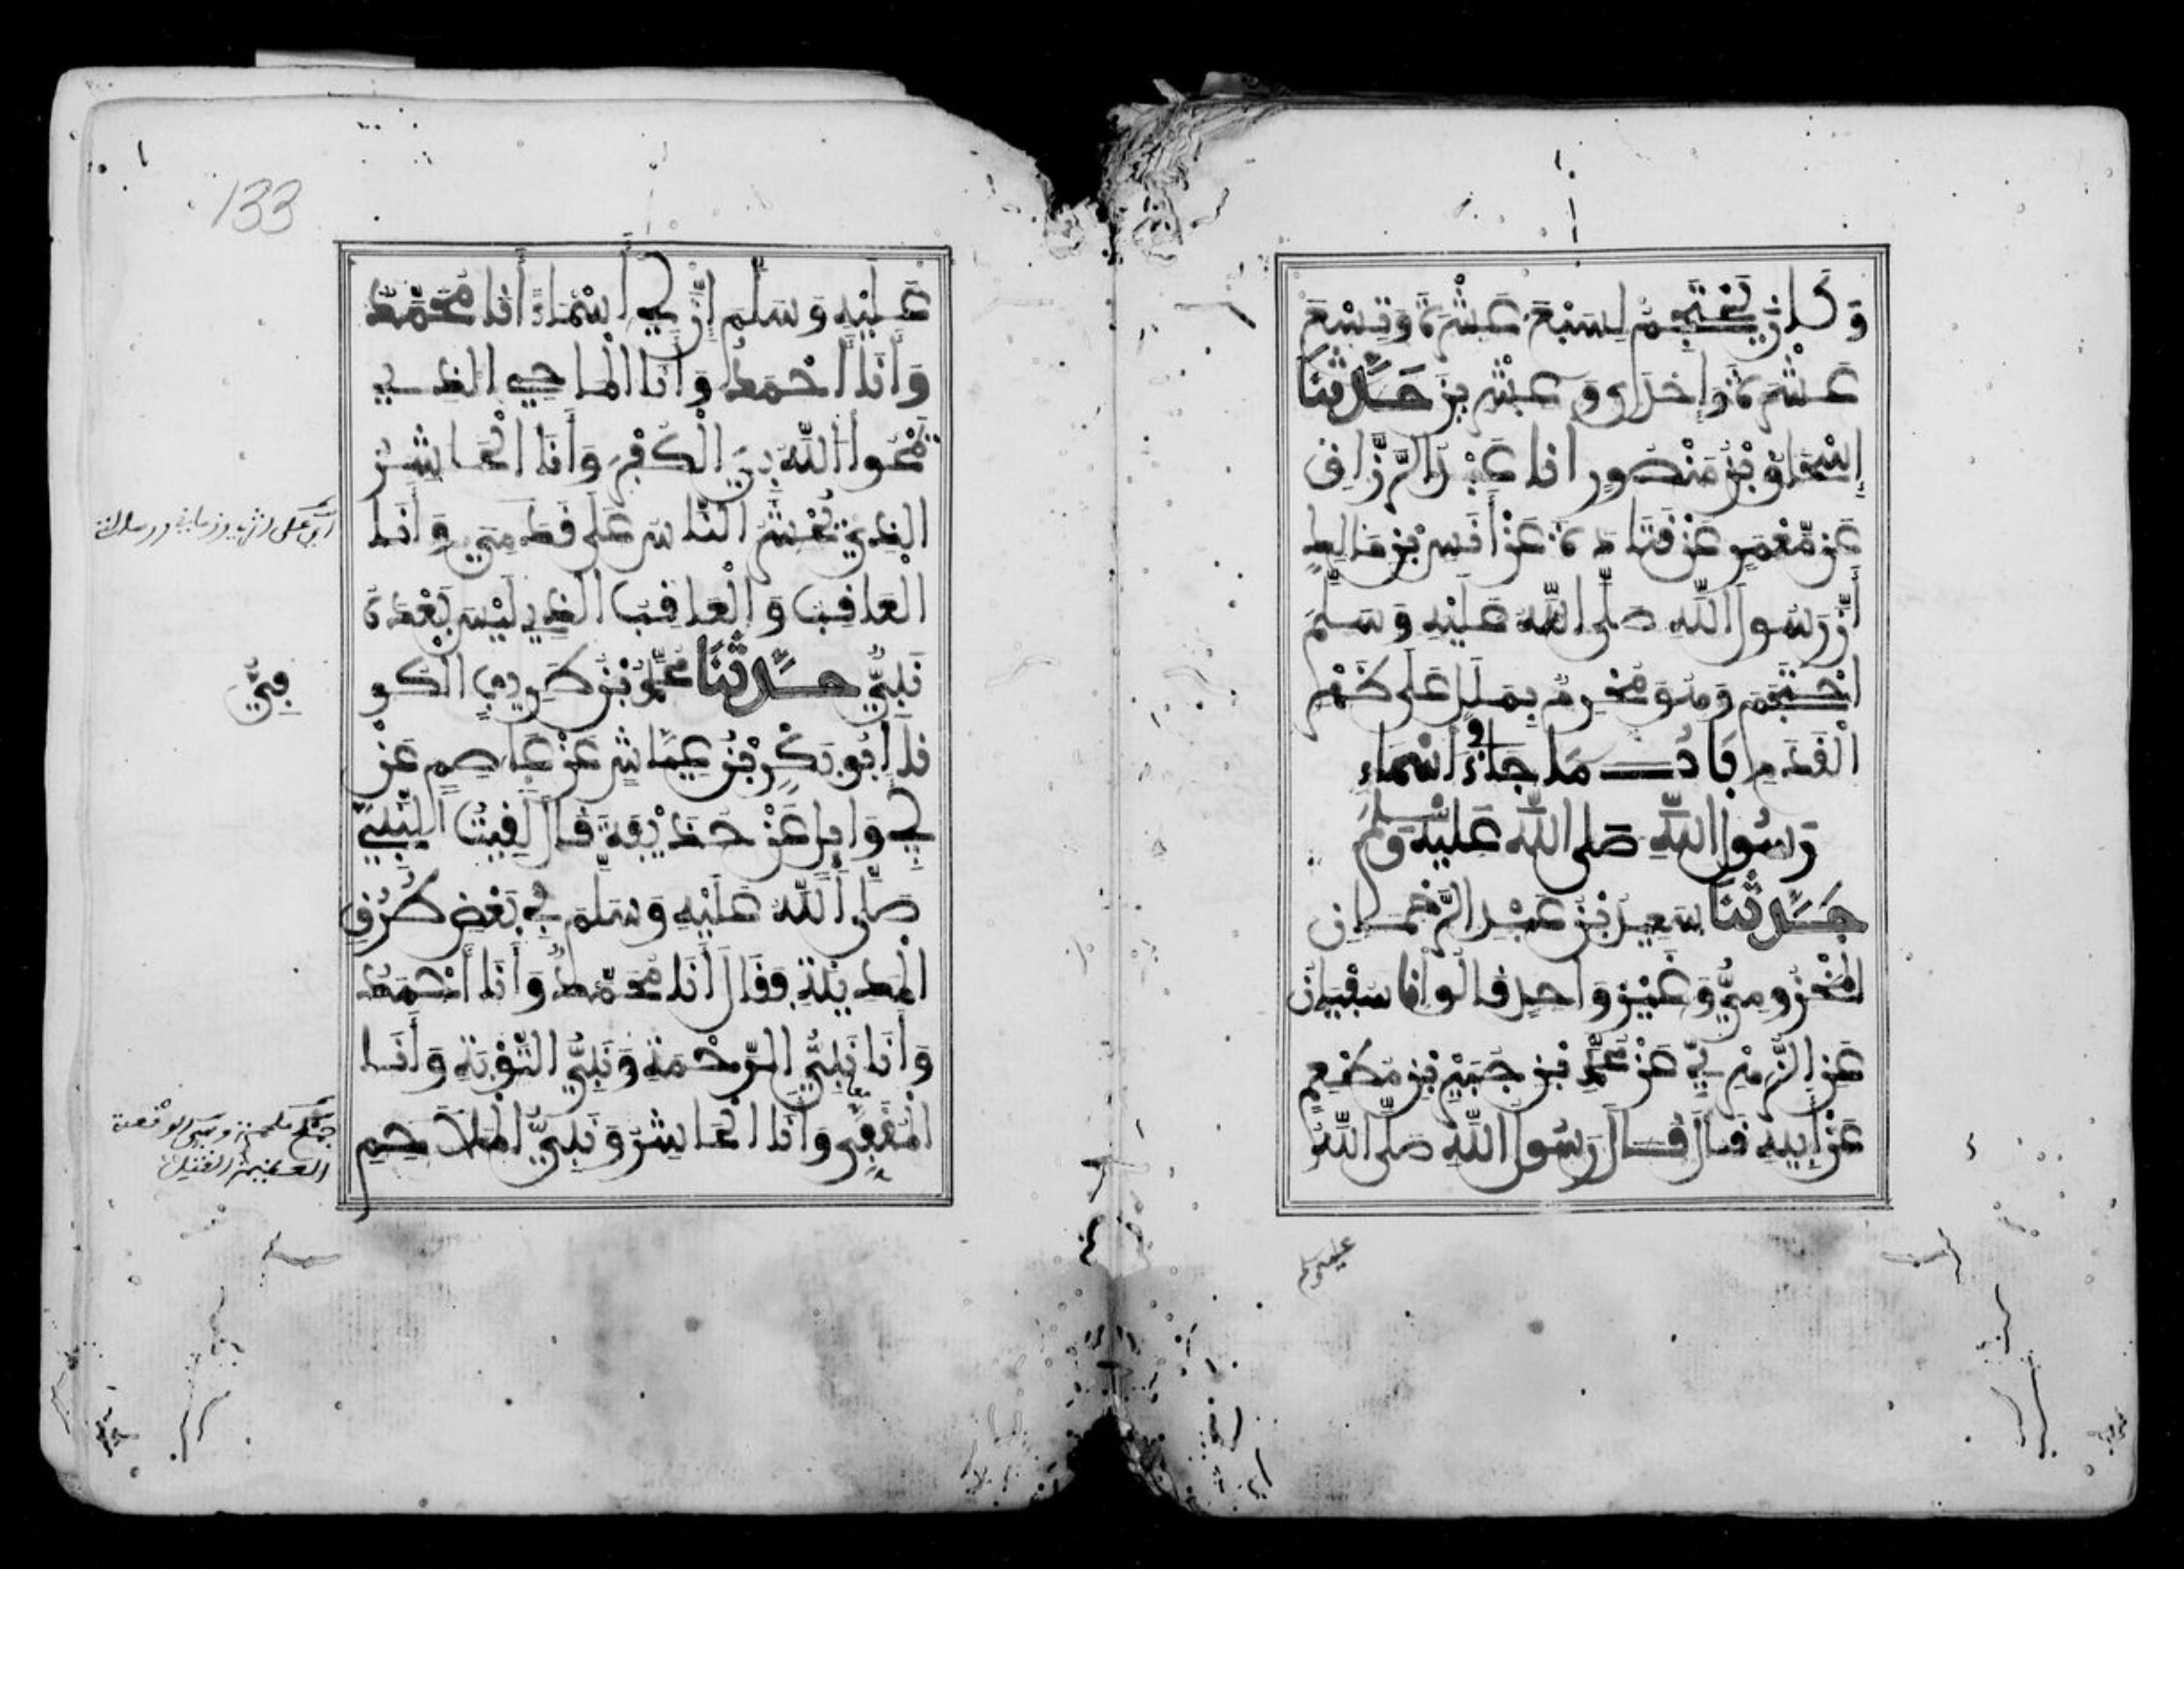 وَكَانَ يَحْتَجِمُ لِسَبْعَ عَشْرَةَ وَتِسْعَ
عَشْرَةَ وَإِحْدَى وَعِشْرِينَ حَدَّثَنَا
إِسْحَاقُ بْنُ مَنْصُورٍ انا عَبْدُ الرَّزَّاقِ
عَنْ مَّعْمَرٍ عَنْ قَتَادَةَ عَنْ أَنَسِ بْنِ مَالِكٍ
أَنَّ رَسُولَ اللَّهِ صَلَّى اللَّهُ عَلَيْهِ وَسَلَّمَ
احْتَجَمَ وَهُوَ مُحْرِمٌ بِمَلَلٍ عَلَى ظَهْرِ
الْقَدَمِ بَابُ مَا جَاءَ فِي أَسْمَاءِ
رَسُولِ اللَّهِ صَلَّى اللَّهُ عَلَيْهِ وَسَلَّمَ
حَدَّثَنَا سَعِيدُ بْنُ عَبْدِ الرَّحْمَانِ
الْمَخْزُومِيُّ وَغَيْرُ وَاحِدٍ قَالُوا انا سُفْيَانُ
عَنِ الزُّهْرِيِّ عَنْ مُحَمَّدِ بْنِ جُبَيْرِ بْنِ مُطْعِمٍ
عَنْ أَبِيهِ قَالَ قَالَ رَسُولُ اللَّهِ صَلَّى اللَّهُ
عليه وسلم
133
عَلَيْهِ وَسَلَّمَ إِنَّ لِي أَسْمَاءً أَنَا مُحَمَّدٌ
وَأَنَا أَحْمَدُ وَأَنَا الْمَاحِي الَّذِي
يَمْحُوا اللَّهُ بِيَ الْكُفْرَ وَأَنَا الْحَاشِرُ
الَّذِي يُحْشَرُ النَّاسُ عَلَى قَدَمِي وَأَنَا
الْعَاقِبُ وَالْعَاقِبُ الَّذِي لَيْسَ بَعْدَهُ
نَبِيٌّ حَدَّثَنَا مُحَمَّدُ بْنُ طَرِيفٍ الْكُو
فِيُّ
نا أَبُو بَكْرِ بْنُ عَيَّاشٍ عَنْ عَاصِمٍ عَنْ
أَبِي وَائِلٍ عَنْ حُذَيْفَةَ قَالَ لَقِيتُ النَّبِيَّ
صَلَّى اللَّهُ عَلَيْهِ وَسَلَّمَ فِي بَعْضِ طُرُقِ
الْمَدِينَةِ فَقَالَ أَنَا مُحَمَّدٌ وَأَنَا أَحْمَدُ
وَأَنَا نَبِيُّ الرَّحْمَةِ وَنَبِيُّ التَّوْبَةِ وَأَنَا
الْمُقَفِّي وَأَنَا الْحَاشِرُ وَنَبِيُّ الْمَلَاحِمِ